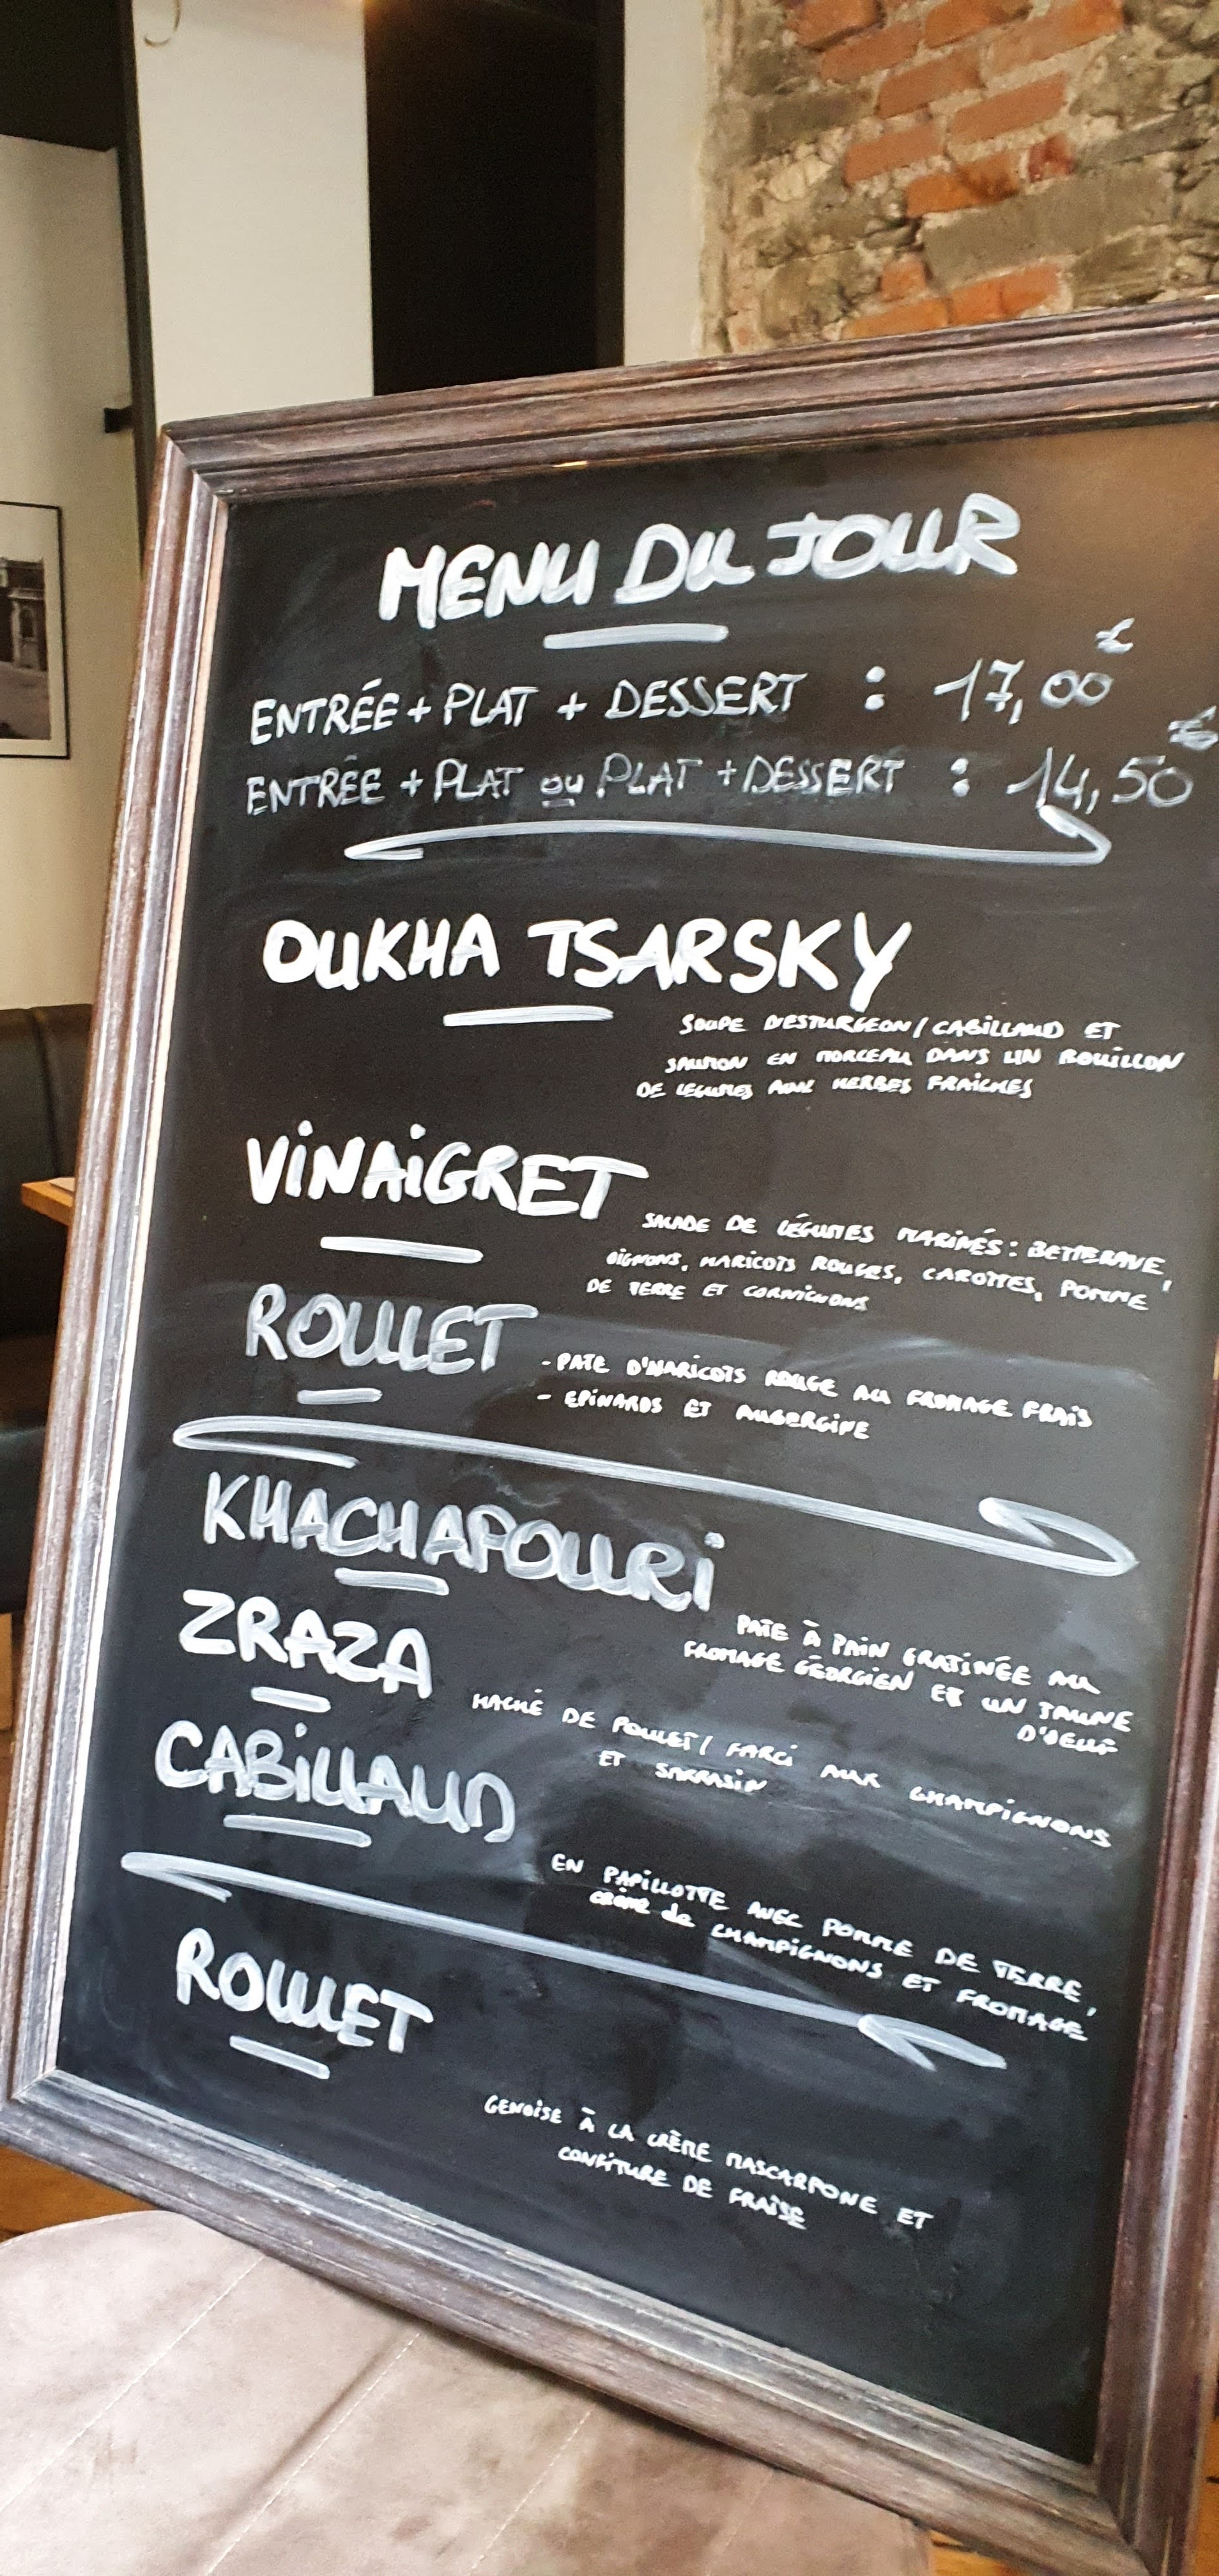 MENU DU JOUR
ENTRÉE + PLAT + DESSERT : 17,00€
ENTRÉE + PLAT ou PLAT + DESSERT : 14,50€
OUKHA TSARSKY
SOUPE D'ESTURGEON/CABILLAUD ET
SAUMON EN MORCEAU DANS UN BOUILLON
DE LEGUMES AUX HERBES FRAICHES
VINAIGRET
SALADE DE LÉGUMES MARINÉS : BETTERAVE,
OIGNONS, HARICOTS ROUGES, CAROTTES, POMME
DE TERRE ET CORNICHONS
ROULET
- PATE D'HARICOTS ROUGE AU FROMAGE FRAIS
- EPINARDS ET AUBERGINE
KHACHAPOURI
PATE À PAIN GRATINÉE AU
FROMAGE GÉORGIEN ET UN JAUNE
D'OEUF
ZRAZA
HACHÉ DE POULET/ FARCI AUX CHAMPIGNONS
ET SARRASIN
CABILLAUD
EN PAPILLOTTE AVEC POMME DE TERRE,
CRÈME de CHAMPIGNONS ET FROMAGE
ROULET
GENOISE À LA CRÈME MASCARPONE ET
CONFITURE DE FRAISE